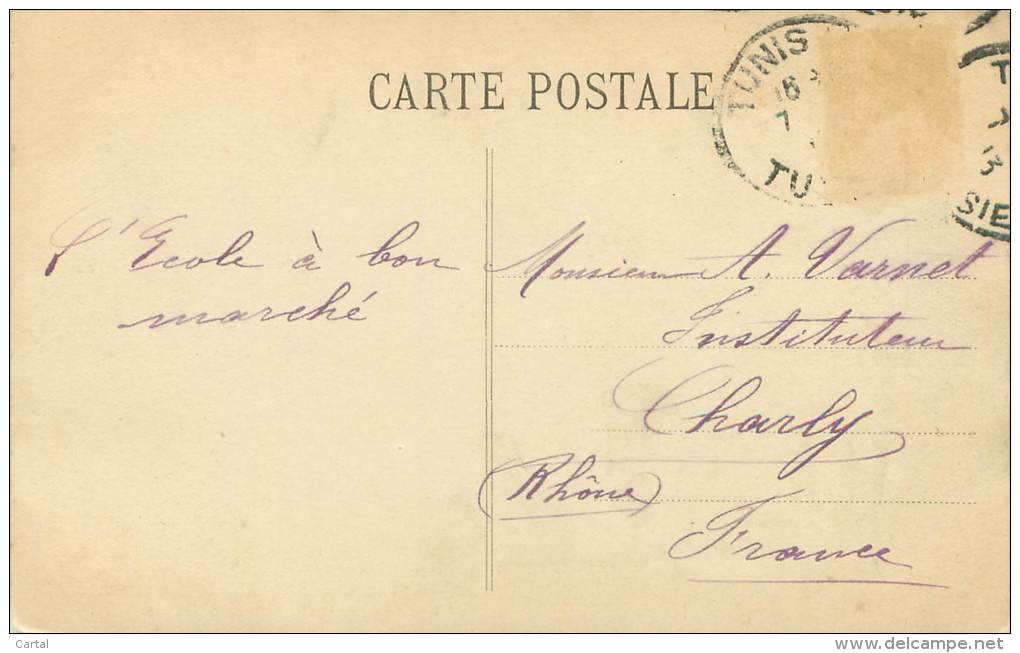 CARTE POSTALE
TUNIS
16
7
TU
13
SIE
L'Ecole à bon
marché
Monsieur A. Varnet
Instituteur
Charly
(Rhône)
France
Cartal
www.delcampe.net